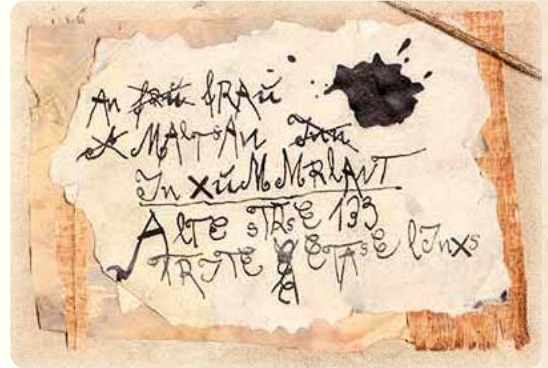 An fRAŭ
K MALTSAN
In XŭMMRLANT
ALTE STRSE 133
TRITE ETASE lInxs